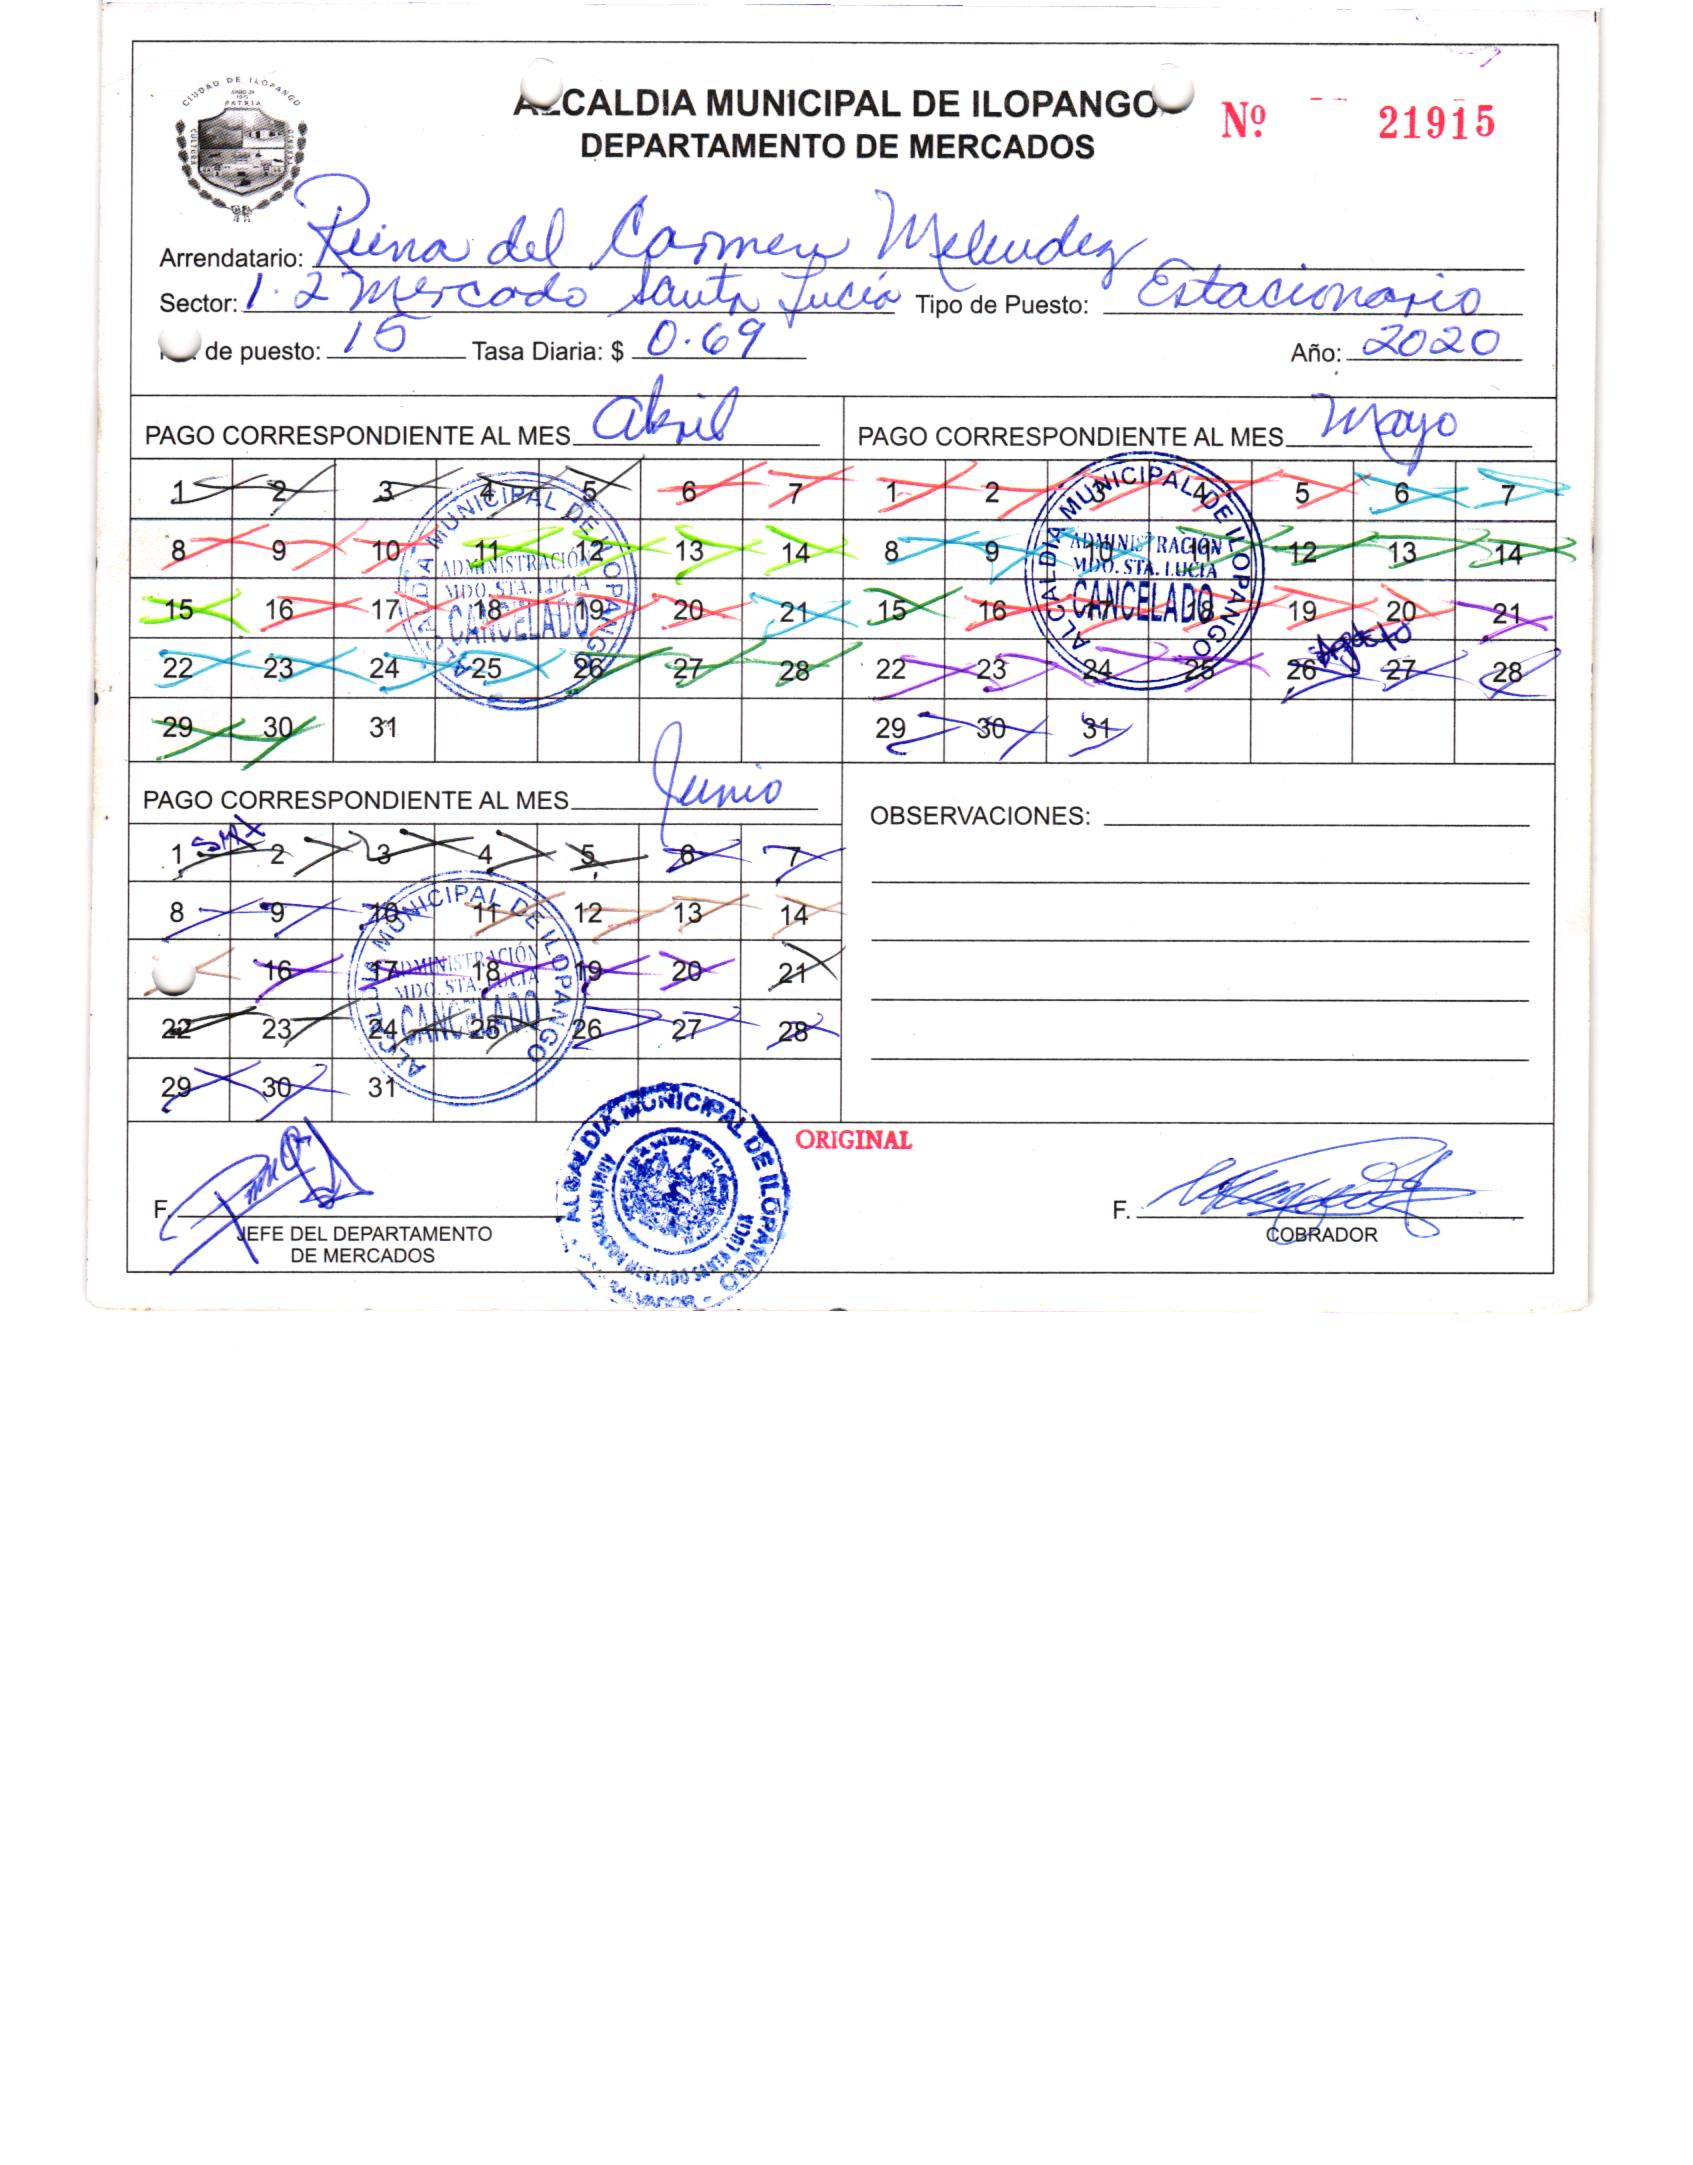 CIUDAD DE ILOPANGO
PATRIA
ALCALDIA MUNICIPAL DE ILOPANGO
DEPARTAMENTO DE MERCADOS
Nº 21915
Arrendatario: Reina del Carmen Melendez
Sector: 1.2 Mercado Santa Lucía Tipo de Puesto: Estacionario
de puesto: 15 Tasa Diaria: $ 0.69 Año: 2020
PAGO CORRESPONDIENTE AL MES Abril
1 2 3 4 5 6 7
8 9 10 11 12 13 14
15 16 17 18 19 20 21
22 23 24 25 26 27 28
29 30 31
ALCALDIA MUNICIPAL DE ILOPANGO
ADMINISTRACIÓN
MDO. STA. LUCIA
CANCELADO
PAGO CORRESPONDIENTE AL MES Mayo
1 2 3 4 5 6 7
8 9 10 11 12 13 14
15 16 17 18 19 20 21
Agosto
22 23 24 25 26 27 28
29 30 31
ALCALDIA MUNICIPAL DE ILOPANGO
ADMINISTRACIÓN
MDO. STA. LUCIA
CANCELADO
PAGO CORRESPONDIENTE AL MES Junio
1 2 3 4 5 6 7
8 9 10 11 12 13 14
16 17 18 19 20 21
22 23 24 25 26 27 28
29 30 31
ALCALDIA MUNICIPAL DE ILOPANGO
ADMINISTRACIÓN
MDO. STA. LUCIA
CANCELADO
OBSERVACIONES:
ORIGINAL
F.
JEFE DEL DEPARTAMENTO
DE MERCADOS
ALCALDIA MUNICIPAL DE ILOPANGO
ADMINISTRACION MERCADO SANTA LUCIA
SALVADOR
F.
COBRADOR